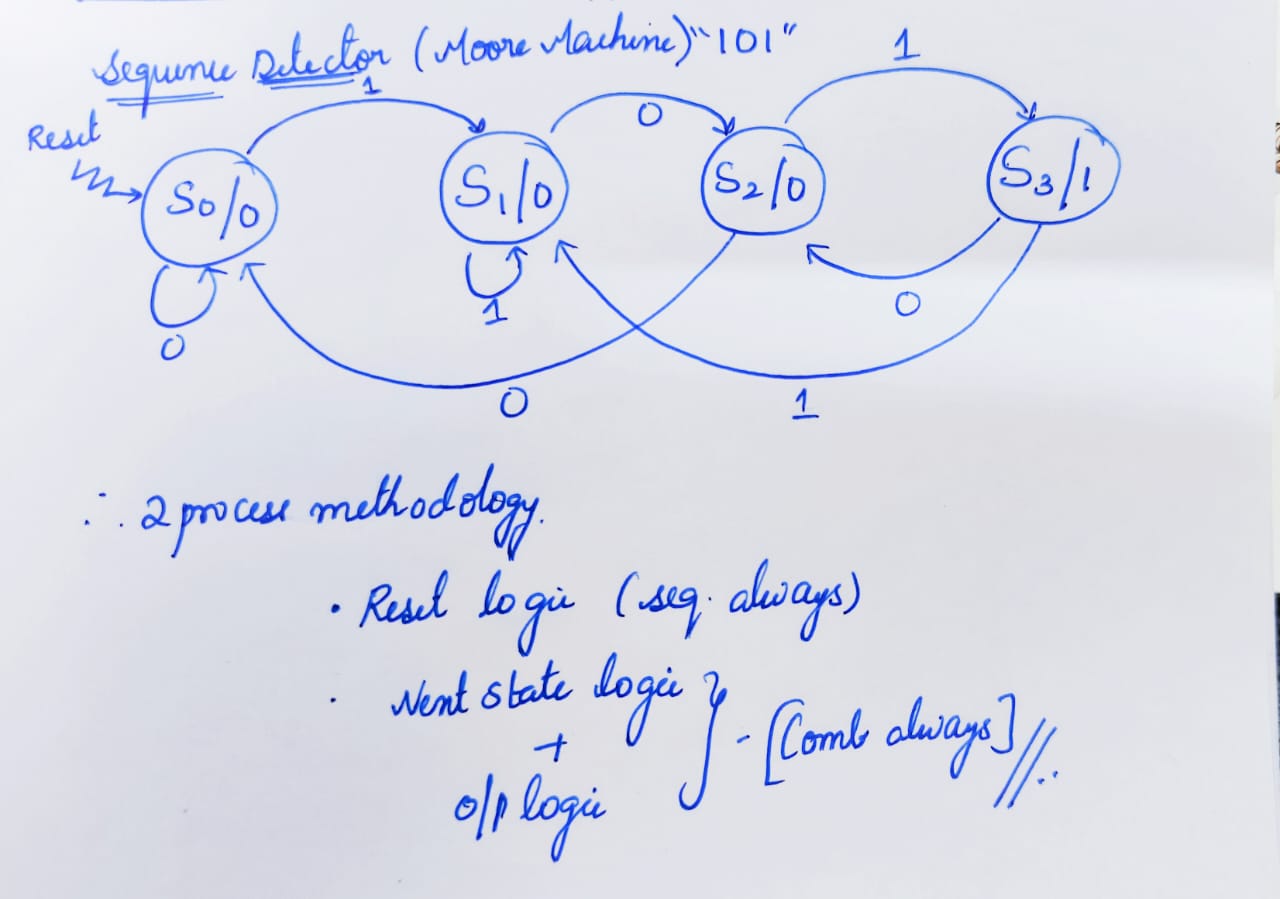 Sequence Detector (Moore Machine) "101"
Reset
1
0
1
S0/0
S1/0
S2/0
S3/1
0
1
0
0
1
∴ 2 process methodology.
• Reset logic (seq. always)
• Next state logic
+
o/p logic
- [Comb always]